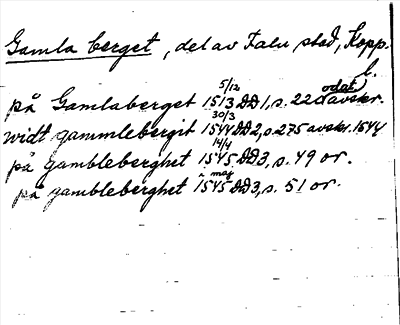 Gamla berget, del av Falu stad, Kopp.
l.
på Gamlaberget 5/12 1513 DD1, s. 22 odat. avskr.
widt gammlebergit 30/3 1544 DD2, s. 275 avskr. 1544
på gambleberghet 14/4 1545 DD3, s. 49 or.
på gambleberghet i maj 1545 DD3, s. 51 or.